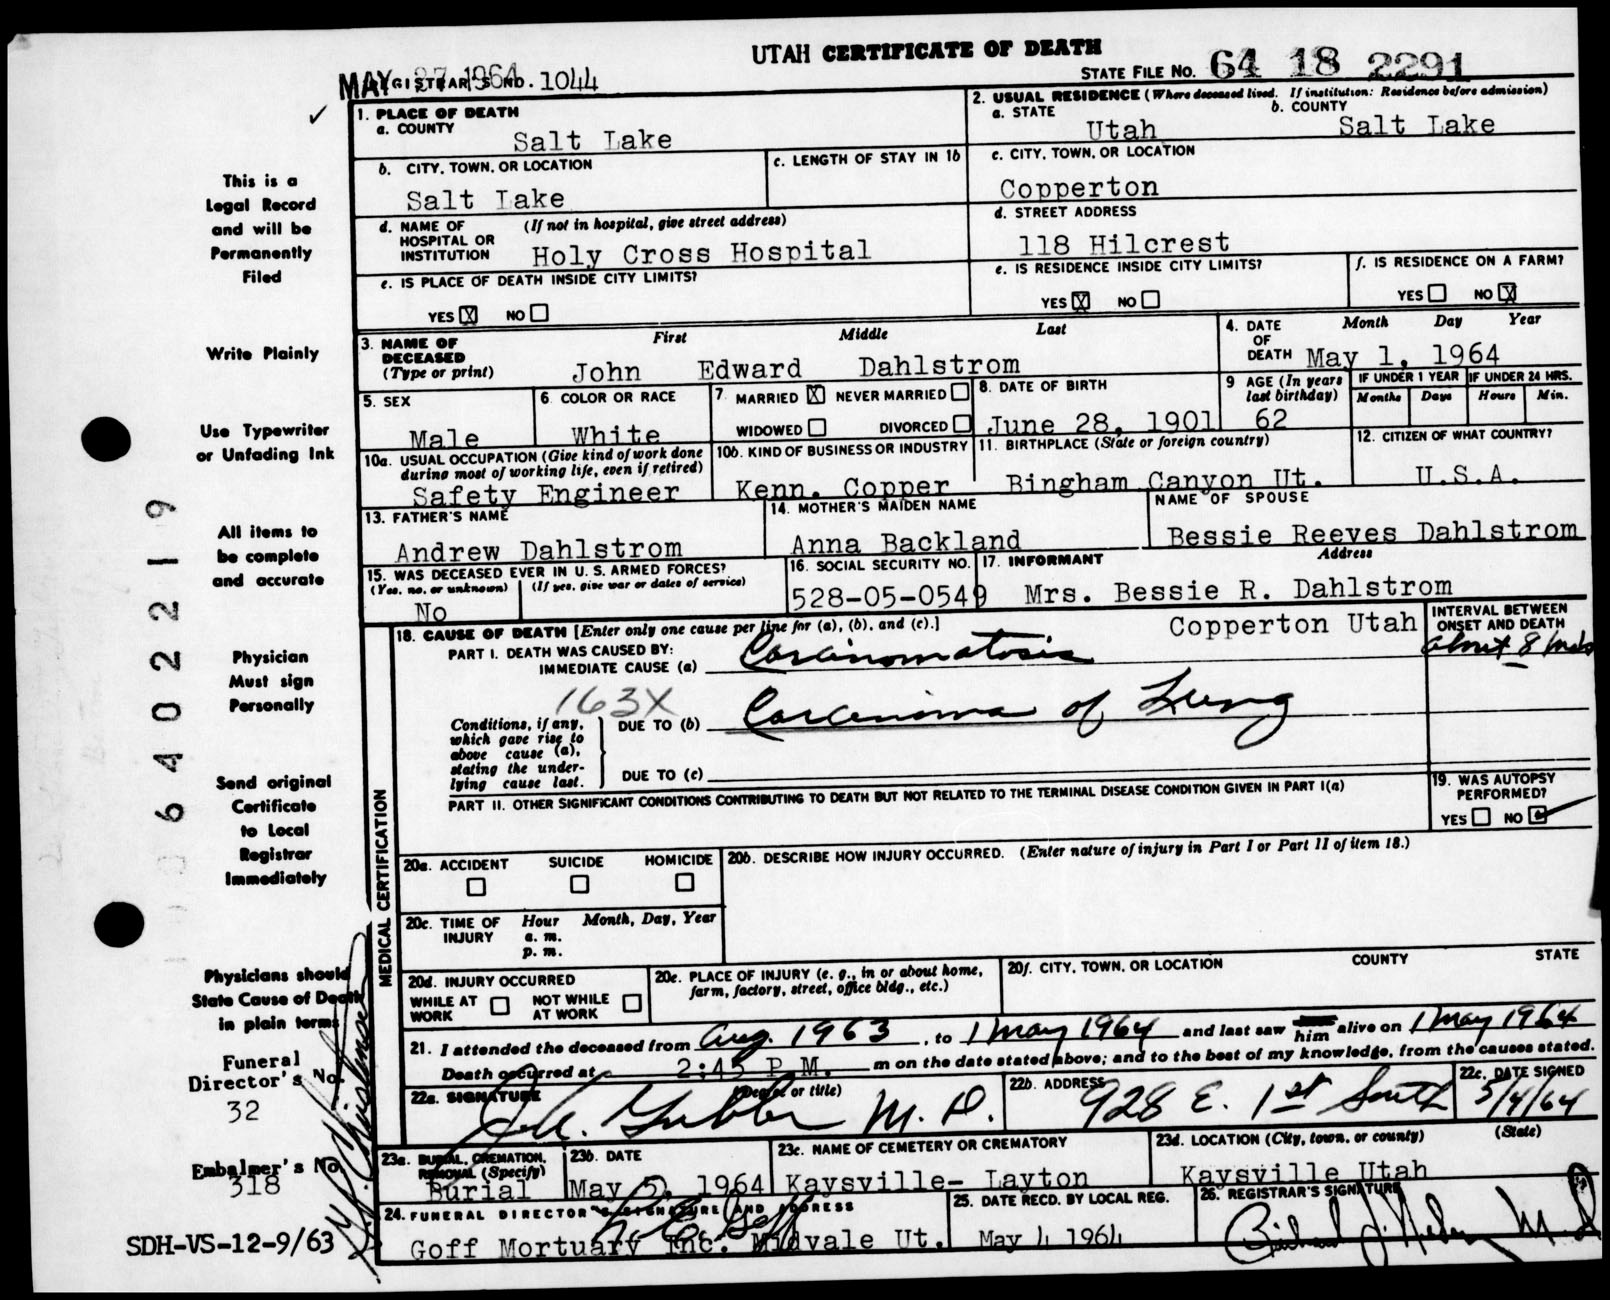 UTAH CERTIFICATE OF DEATH
MAY 27 1964 REGISTRAR'S NO. 1044
STATE FILE NO. 64 18 2291
1. PLACE OF DEATH
a. COUNTY
Salt Lake
2. USUAL RESIDENCE (Where deceased lived. If institution: Residence before admission)
a. STATE b. COUNTY
Utah Salt Lake
b. CITY, TOWN, OR LOCATION
Salt Lake
c. LENGTH OF STAY IN 1b
c. CITY, TOWN, OR LOCATION
Copperton
d. NAME OF HOSPITAL OR INSTITUTION (If not in hospital, give street address)
Holy Cross Hospital
d. STREET ADDRESS
118 Hilcrest
e. IS PLACE OF DEATH INSIDE CITY LIMITS?
YES X NO
e. IS RESIDENCE INSIDE CITY LIMITS?
YES X NO
f. IS RESIDENCE ON A FARM?
YES NO X
3. NAME OF DECEASED (Type or print)
First Middle Last
John Edward Dahlstrom
4. DATE OF DEATH
Month Day Year
May 1, 1964
5. SEX
Male
6. COLOR OR RACE
White
7. MARRIED X NEVER MARRIED
WIDOWED DIVORCED
8. DATE OF BIRTH
June 28, 1901
9 AGE (In years last birthday)
62
IF UNDER 1 YEAR IF UNDER 24 HRS.
Months Days Hours Min.
10a. USUAL OCCUPATION (Give kind of work done during most of working life, even if retired)
Safety Engineer
10b. KIND OF BUSINESS OR INDUSTRY
Kenn. Copper
11. BIRTHPLACE (State or foreign country)
Bingham Canyon Ut.
12. CITIZEN OF WHAT COUNTRY?
U.S.A.
13. FATHER'S NAME
Andrew Dahlstrom
14. MOTHER'S MAIDEN NAME
Anna Backland
NAME OF SPOUSE
Bessie Reeves Dahlstrom
15. WAS DECEASED EVER IN U. S. ARMED FORCES?
(Yes, no, or unknown) (If yes, give war or dates of service)
No
16. SOCIAL SECURITY NO.
528-05-0549
17. INFORMANT Address
Mrs. Bessie R. Dahlstrom
Copperton Utah
18. CAUSE OF DEATH [Enter only one cause per line for (a), (b), and (c).]
PART I. DEATH WAS CAUSED BY:
IMMEDIATE CAUSE (a) Carcinomatosis
INTERVAL BETWEEN ONSET AND DEATH
about 8 mos
163X
Conditions, if any, which gave rise to above cause (a), stating the underlying cause last.
DUE TO (b) Carcinoma of Lung
DUE TO (c)
PART II. OTHER SIGNIFICANT CONDITIONS CONTRIBUTING TO DEATH BUT NOT RELATED TO THE TERMINAL DISEASE CONDITION GIVEN IN PART I(a)
19. WAS AUTOPSY PERFORMED?
YES NO
MEDICAL CERTIFICATION
20a. ACCIDENT SUICIDE HOMICIDE
20b. DESCRIBE HOW INJURY OCCURRED. (Enter nature of injury in Part I or Part II of item 18.)
20c. TIME OF INJURY Hour Month, Day, Year
a. m.
p. m.
20d. INJURY OCCURRED
WHILE AT WORK NOT WHILE AT WORK
20e. PLACE OF INJURY (e. g., in or about home, farm, factory, street, office bldg., etc.)
20f. CITY, TOWN, OR LOCATION COUNTY STATE
21. I attended the deceased from Aug. 1963, to 1 May 1964 and last saw him alive on 1 May 1964
Death occurred at 2:45 P.M. m on the date stated above; and to the best of my knowledge, from the causes stated.
22a. SIGNATURE (Degree or title)
M. D.
22b. ADDRESS
928 E. 1st South
22c. DATE SIGNED
5/4/64
23a. BURIAL, CREMATION, REMOVAL (Specify)
Burial
23b. DATE
May 5, 1964
23c. NAME OF CEMETERY OR CREMATORY
Kaysville- Layton
23d. LOCATION (City, town, or county) (State)
Kaysville Utah
24. FUNERAL DIRECTOR'S SIGNATURE AND ADDRESS
Goff Mortuary Inc. Midvale Ut.
25. DATE RECD. BY LOCAL REG.
May 4 1964
26. REGISTRAR'S SIGNATURE
M D
This is a
Legal Record
and will be
Permanently
Filed
Write Plainly
Use Typewriter
or Unfading Ink
All items to
be complete
and accurate
Physician
Must sign
Personally
Send original
Certificate
to Local
Registrar
Immediately
Physicians should
State Cause of Death
in plain terms
Funeral
Director's No.
32
Embalmer's No.
318
SDH-VS-12-9/63
6402219